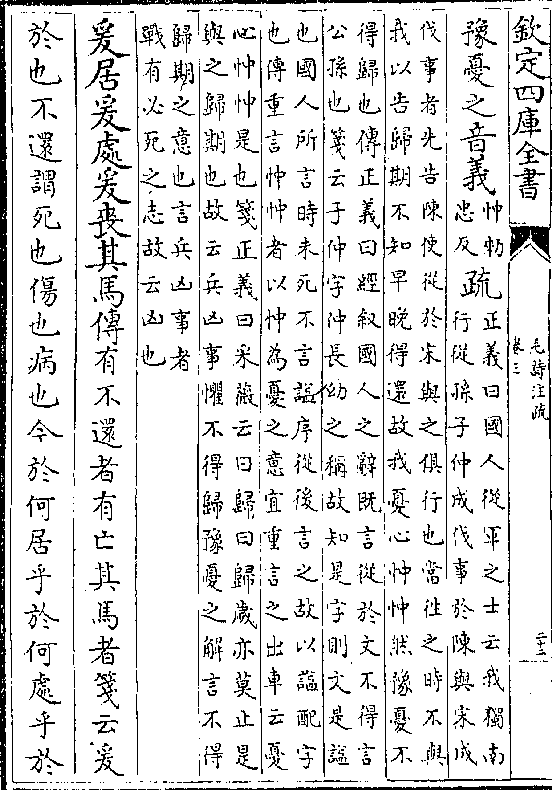 欽定四庫全書
毛詩注疏
卷三
二十三
豫憂之音義忡勅
忠反疏正義曰國人從軍之士云我獨南
行從孫子仲成伐事於陳與宋成
伐事者先告陳使從於宋與之俱行也當往之時不與
我以告歸期不知早晚得還故我憂心忡忡然豫憂不
得歸也傳正義曰經叙國人之辭既言從於文不得言
公孫也箋云子仲字仲長幼之稱故知是字則文是諡
也國人所言時未死不言諡序從後言之故以諡配字
也傳重言忡忡者以忡為憂之意宜重言之出車云憂
心忡忡是也箋正義曰采薇云曰歸曰歸歲亦莫止是
與之歸期也故云兵凶事懼不得歸豫憂之解言不得
歸期之意也言兵凶事者
戰有必死之志故云凶也
爰居爰處爰喪其馬傳有不還者有亡其馬者箋云爰
於也不還謂死也傷也病也今於何居乎於何處乎於